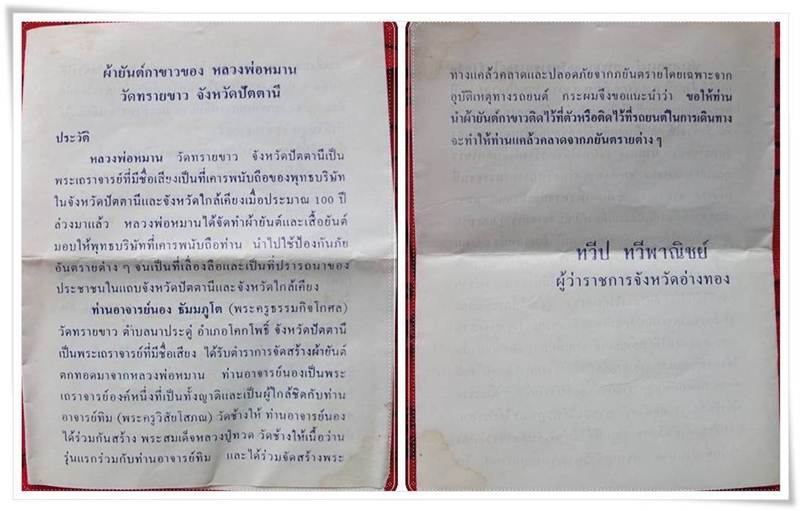 ผ้ายันต์กาขาวของ หลวงพ่อหมาน
วัดทรายขาว จังหวัดปัตตานี
ประวัติ
หลวงพ่อหมาน วัดทรายขาว จังหวัดปัตตานีเป็น
พระเถราจารย์ที่มีชื่อเสียงเป็นที่เคารพนับถือของพุทธบริษัท
ในจังหวัดปัตตานีและจังหวัดใกล้เคียงเมื่อประมาณ 100 ปี
ล่วงมาแล้ว หลวงพ่อหมานได้จัดทำผ้ายันต์และเสื้อยันต์
มอบให้พุทธบริษัทที่เคารพนับถือท่าน นำไปใช้ป้องกันภัย
อันตรายต่าง ๆ จนเป็นที่เลื่องลือและเป็นที่ปรารถนาของ
ประชาชนในแถบจังหวัดปัตตานีและจังหวัดใกล้เคียง
ท่านอาจารย์นอง ธัมมภูโต (พระครูธรรมกิจโกศล)
วัดทรายขาว ตำบลนาประดู่ อำเภอโคกโพธิ์ จังหวัดปัตตานี
เป็นพระเถราจารย์ที่มีชื่อเสียง ได้รับตำราการจัดสร้างผ้ายันต์
ตกทอดมาจากหลวงพ่อหมาน ท่านอาจารย์นองเป็นพระ
เถราจารย์องค์หนึ่งที่เป็นทั้งญาติและเป็นผู้ใกล้ชิดกับท่าน
อาจารย์ทิม (พระครูวิสัยโสภณ) วัดช้างให้ ท่านอาจารย์นอง
ได้ร่วมกันสร้าง พระสมเด็จหลวงปู่ทวด วัดช้างให้เนื้อว่าน
รุ่นแรกร่วมกับท่านอาจารย์ทิม และได้ร่วมจัดสร้างพระ
ทางแคล้วคลาดและปลอดภัยจากภยันตรายโดยเฉพาะจาก
อุบัติเหตุทางรถยนต์ กระผมจึงขอแนะนำว่า ขอให้ท่าน
นำผ้ายันต์กาขาวติดไว้ที่ตัวหรือติดไว้ที่รถยนต์ในการเดินทาง
จะทำให้ท่านแคล้วคลาดจากภยันตรายต่าง ๆ
ทวีป ทวีพาณิชย์
ผู้ว่าราชการจังหวัดอ่างทอง